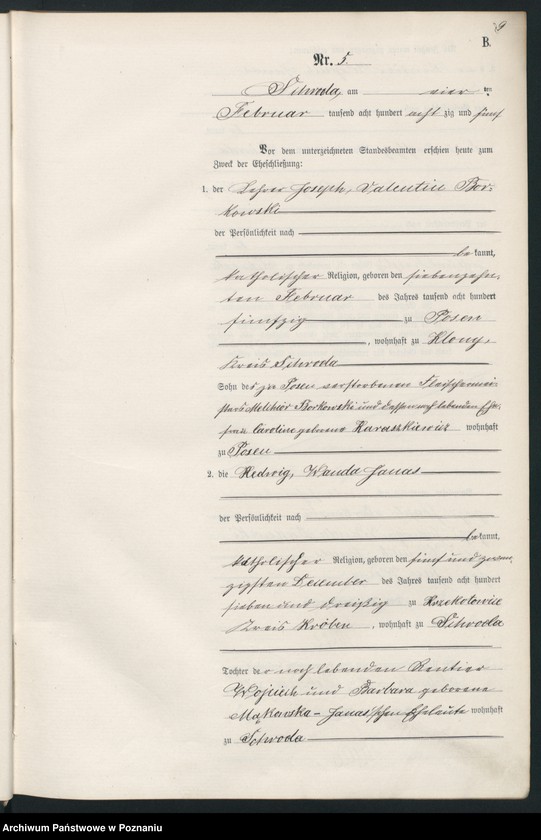 9
B.
Nr. 5.
Schroda, am vier ten
Februar tausend acht hundert acht zig und fünf
Vor dem unterzeichneten Standesbeamten erschien heute zum
Zweck der Eheschließung:
1. der Lehrer Joseph, Valentin Bor-
kowski
der Persönlichkeit nach
be kannt,
katholischer Religion, geboren den siebenzehn-
ten Februar des Jahres tausend acht hundert
fünfzig zu Posen
, wohnhaft zu Klony,
Kreis Schroda
Sohn des zu Posen verstorbenen Fleischermei-
sters Melchior Borkowski und dessen noch lebenden Ehe-
frau Caroline geborene Karaszkiewicz wohnhaft
zu Posen
2. die Hedwig, Wanda Janas
der Persönlichkeit nach
be kannt,
katholischer Religion, geboren den fünf und zwan-
zigsten Dezember des Jahres tausend acht hundert
sieben und dreißig zu
Kreis Kröben, wohnhaft zu Schroda
Tochter der noch lebenden Rentier
Wojciech und Barbara geborene
Mąkowska - Janas'schen Eheleute wohnhaft
zu Schroda
Archiwum Państwowe w Poznaniu